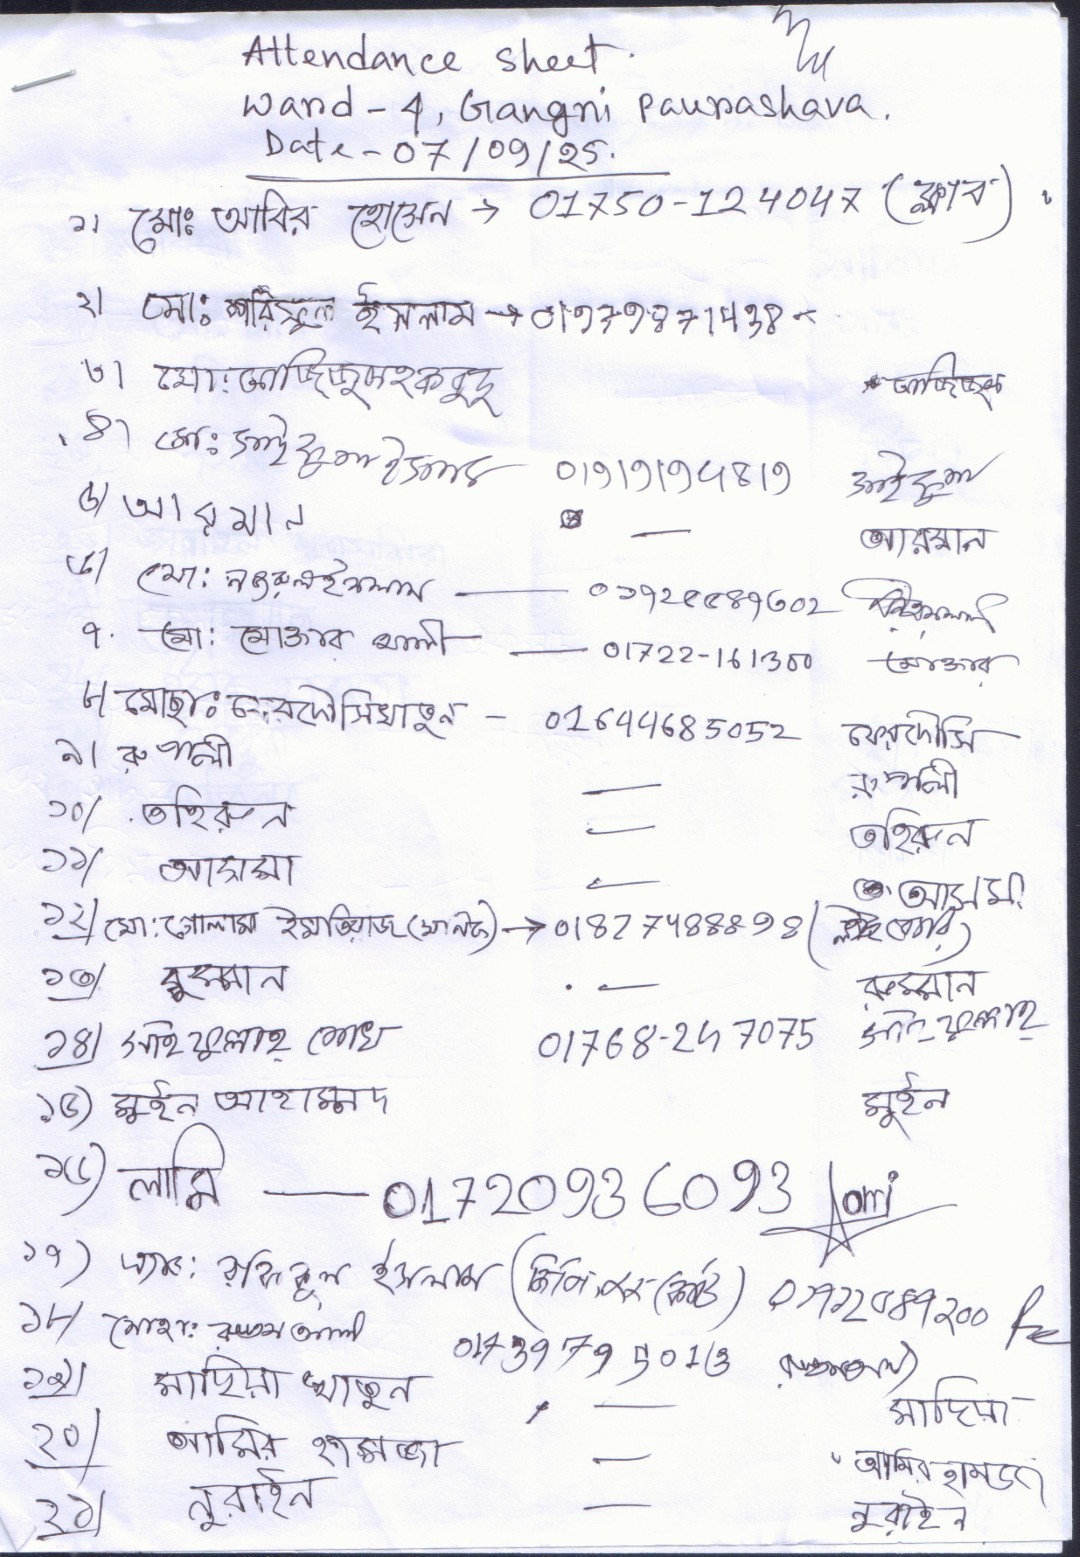 Attendance sheet.
Ward - 4, Gangni Paurashava.
Date - 07/09/25.
১। মোঃ আবির হোসেন → 01750-124047 (ক্লাব)
২। মোঃ শরিফুল ইসলাম → 01979871438
৩। মো: আজিজুল হক আজিজুল
৪। মোঃ সাইফুল ইসলাম 01919194819 সাইফুল
৫। আরমান — আরমান
৬। মো: নজরুল ইসলাম —
৭. মো: মোক্তার আলী — 01722-161300 মোক্তার
৮। মোছাঃ ফেরদৌসি খাতুন - 01644685052 ফেরদৌসি
৯। রুপালী — রুপালী
১০। তহিরুন — তহিরুন
১১। আসমা — আসমা
১২। মো: গোলাম ইমতিয়াজ → 01827488898
১৩। রুসমান · — রুসমান
১৪। সাইফুল্লাহ শেখ 01768-247075 সাইফুল্লাহ
১৫) মুইন আহাম্মদ মুইন
১৬) লামি — 01720936093 lami
১৭) রফিকুল ইসলাম
১৮। মোহা: রুস্তম আলী রুস্তম আলী
১৯। মাহিয়া খাতুন — মাহিয়া
২০। আমির হামজা — আমির হামজা
২১। নুরাইন — নুরাইন